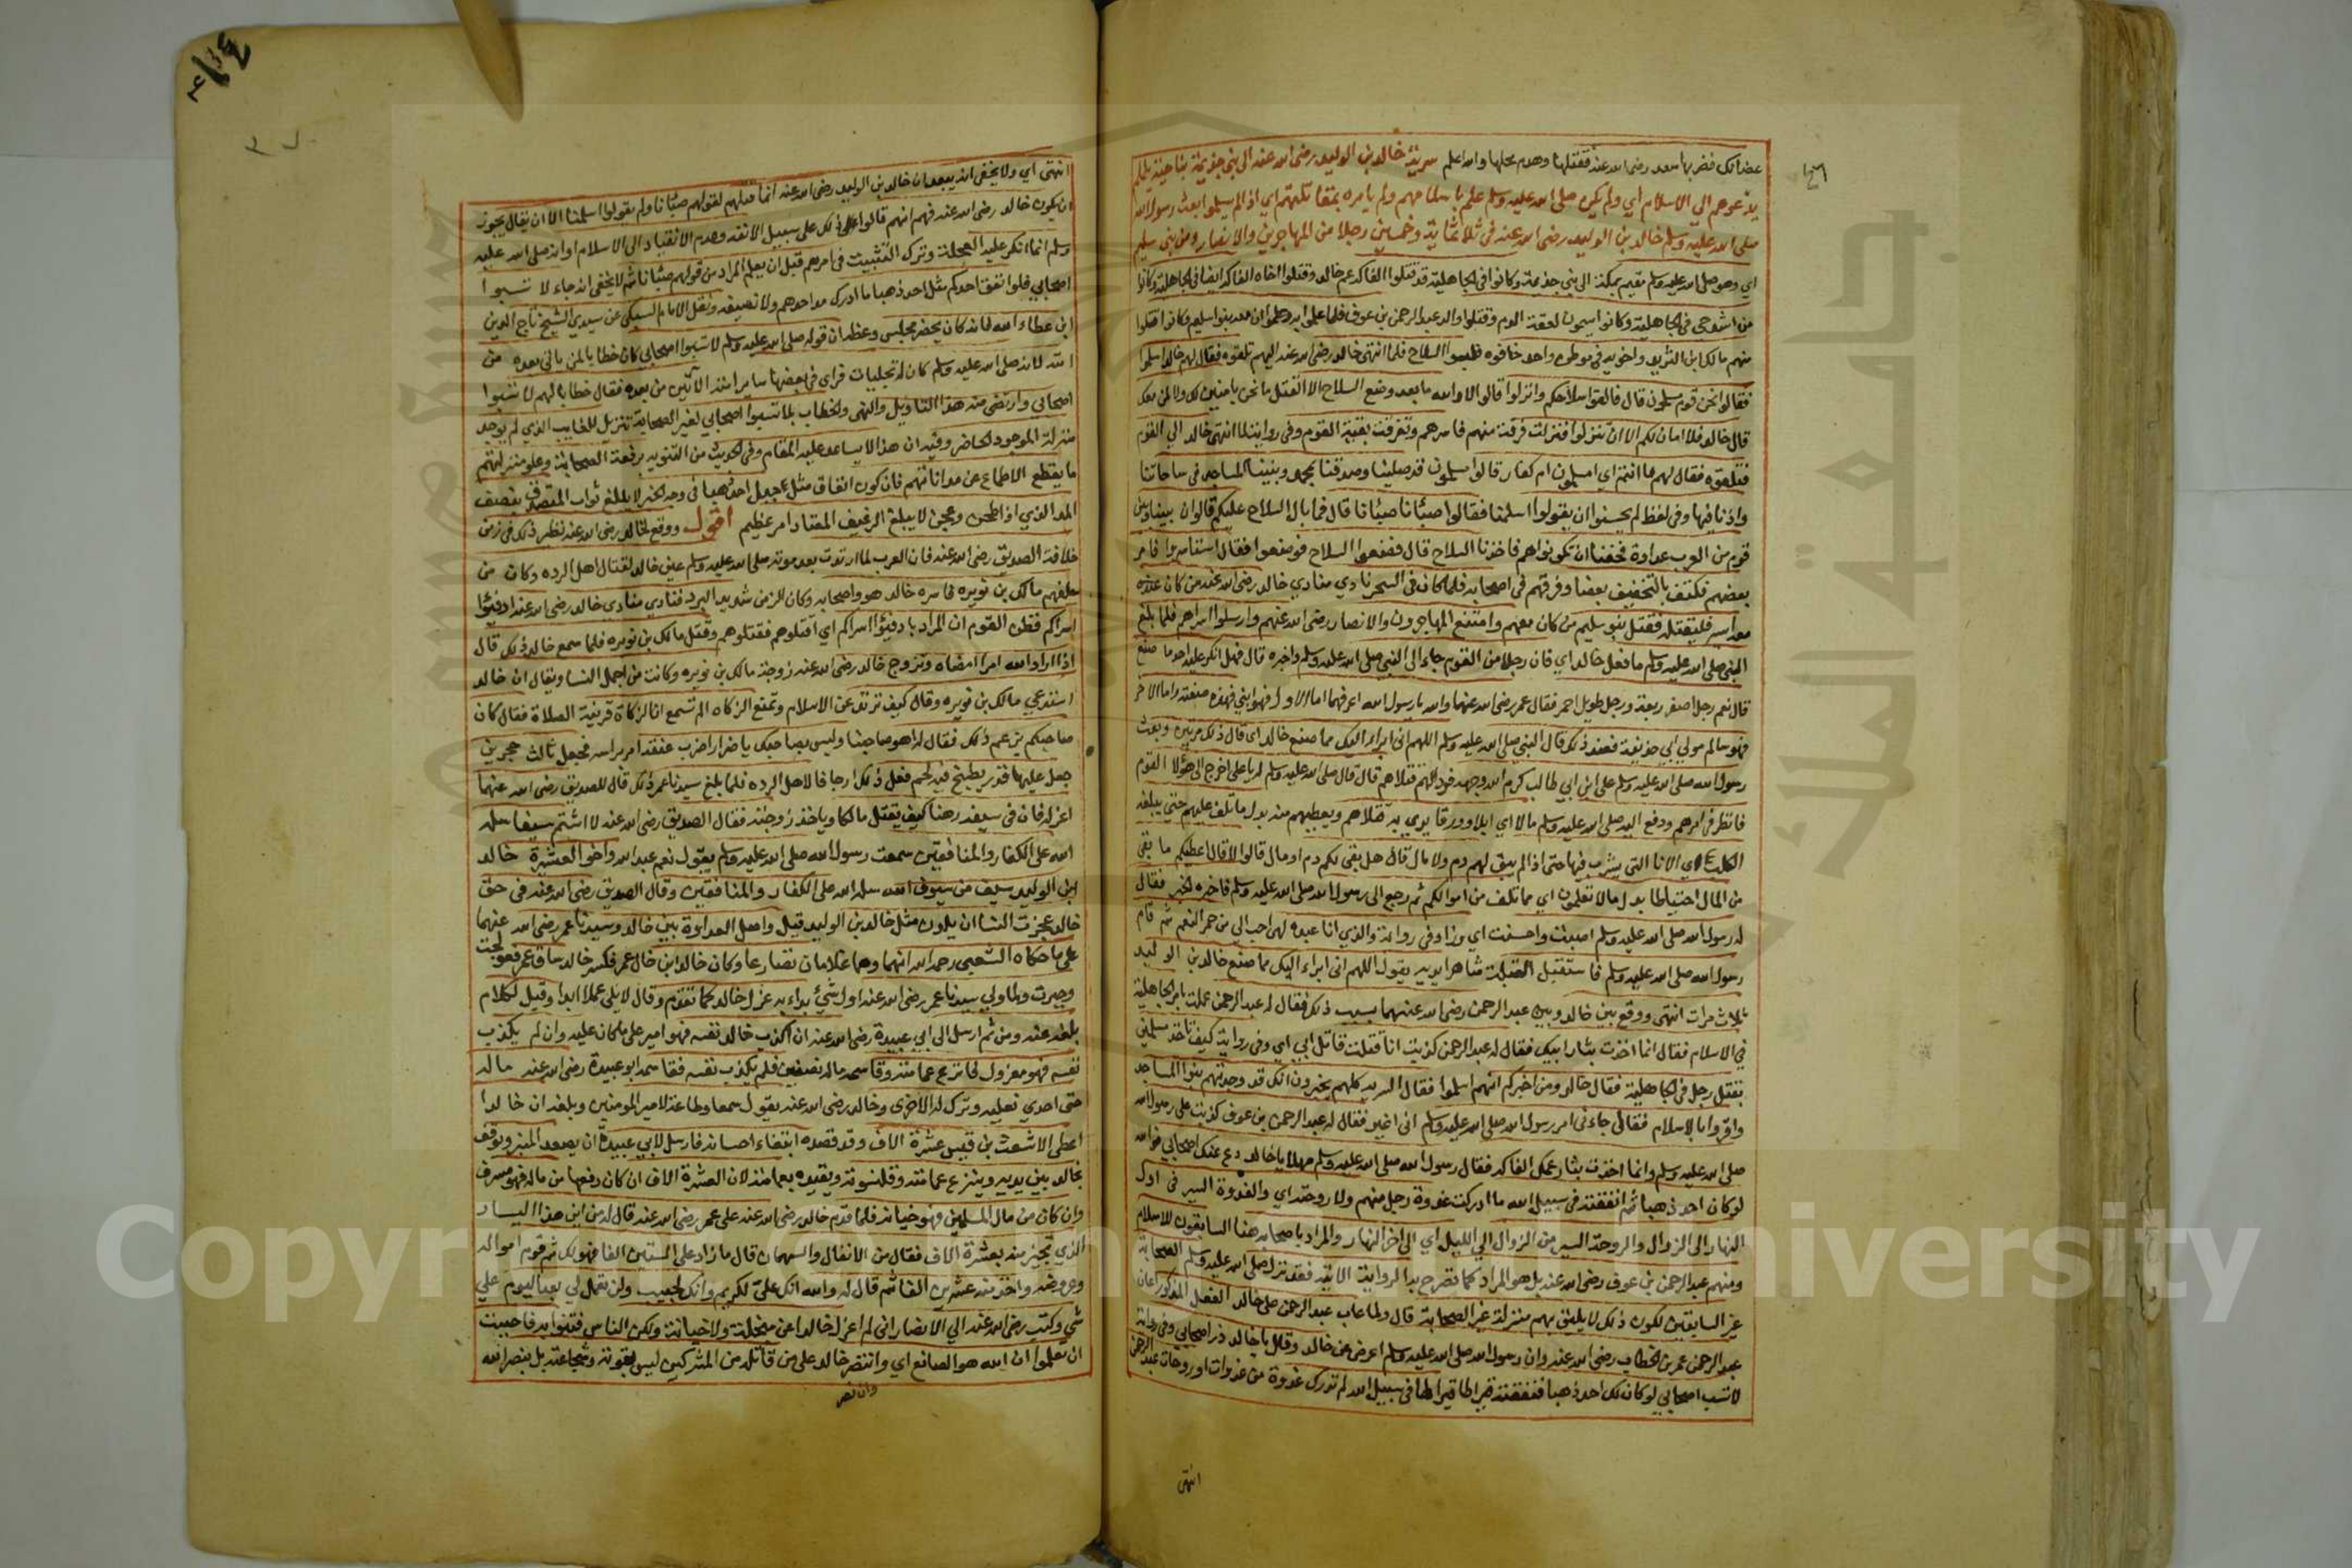 عضاتك فضربها سعد رضى الله عنه فقتلها وهدم محلها والله اعلم سرية خالد بن الوليد رضى الله عنه الى بني جذيمة بناحية يلملم
يدعوهم الي الاسلام اي ولم يكن صلى الله عليه وسلم علم باسلامهم ولم يامره بمقاتلتهم اي اذا لم يسلموا بعث رسول الله
صلى الله عليه وسلم خالد بن الوليد رضى الله عنه فى ثلاثمائة وخمسين رجلا من المهاجرين والانصار ومن بني سليم
اي وهو صلى الله عليه وسلم مقيم بمكة الى بني جذيمة وكانوا فى الجاهلية قد قتلوا الفاكه عم خالد وقتلوا اخاه الفاكه ايضا فى الجاهلية وكانوا
من اشد حي فى الجاهلية وكانوا يسمون لعقة الدم وقتلوا والد عبد الرحمن بن عوف فلما علموا به وعلموا ان معه بنوا سليم وكانوا قتلوا
منهم مالك بن الشريد واخويه فى موطن واحد خافوه فلبسوا السلاح فلما انتهى خالد رضى الله عنه اليهم تلقوه فقال لهم خالد اسلموا
فقالوا نحن قوم مسلمون قال فالقوا سلاحكم وانزلوا قالوا لا والله ما بعد وضع السلاح الا القتل ما نحن بامنين لك ولا لمن معك
قال خالد فلا امان لكم الا ان تنزلوا فنزلت فرقة منهم فاسرهم وتفرقت بقية القوم وفى رواية لما انتهى خالد الي القوم
فتلقوه فقال لهم ما انتم اي امسلمون ام كفار قالوا مسلمون قد صلينا وصدقنا بمحمد وبنينا المساجد فى ساحاتنا
واذنا فيها وفى لفظ لم يحسنوا ان يقولوا اسلمنا فقالوا صبانا صبانا قال فما بال السلاح عليكم قالوا ان بيننا وبين
قوم من العرب عداوة فخفنا ان تكونوا هم فاخذنا السلاح قال فضعوا السلاح فوضعوا فقال استاسروا فامر
بعضهم فكتف بالتخفيف بعضا وفرقهم فى اصحابه فلما كان فى السحر نادي منادي خالد رضى الله عنه من كان عنده
معه اسير فليقتله فقتل بنو سليم من كان معهم وامتنع المهاجرون والانصار رضى الله عنهم وارسلوا اسراهم فلما بلغ
النبي صلى الله عليه وسلم ما فعل خالد اي فان رجلا من القوم جاء الى النبي صلى الله عليه وسلم واخبره قال فهل انكر عليه احد ما صنع
قال نعم رجل اصفر ربعة ورجل طويل احمر فقال عمر رضى الله عنهما والله يا رسول الله اعرفهما اما الاول فهو ابني فهذه صفته واما الاخر
فهو سالم مولي ابي حذيفة فعند ذلك قال النبي صلى الله عليه وسلم اللهم انى ابراء اليك مما صنع خالد اى قال ذلك مرتين وبعث
رسول الله صلى الله عليه وسلم على ابن ابي طالب كرم الله وجهه فودا لهم قتلاهم قال قال صلى الله عليه وسلم له يا على اخرج الى هؤلا القوم
فانظر فى امرهم ودفع اليه صلى الله عليه وسلم مالا اي ابلا وورقا يودي به قتلاهم ويعطيهم منه بدل ما تلف عليهم حتي ميلغة
الكلب اي الانا التى يشرب فيها حتى اذا لم يبق لهم دم ولا مال قال هل بقى لكم دم او مال قالوا لا قال اعطيكم ما بقى
من المال احتياطا بدل ما لا تعلمون اي مما تلف من اموالكم ثم رجع الى رسول الله صلى الله عليه وسلم فاخبره الخبر فقال
له رسول الله صلى الله عليه وسلم اصبت واحسنت اي وزاد فى رواية والذي انا عبده لهي احب الي من حمر النعم ثم قام
رسول الله صلى الله عليه وسلم فاستقبل القبلة شاهرا يديه يقول اللهم انى ابراء اليك مما صنع خالد بن الوليد
ثلاث مرات انتهى ووقع بين خالد وبين عبد الرحمن رضى الله عنهما بسبب ذلك فقال له عبد الرحمن عملت بامر الجاهلية
في الاسلام فقال انما اخذت بثار ابيك فقال له عبد الرحمن كذبت انا قتلت قاتل ابي اي وفى رواية كيف تاخذ مسلمين
بقتل رجل فى الجاهلية فقال خالد ومن اخبركم انهم اسلموا فقال السرية كلهم يخبرون انك قد وجدتهم بنوا المساجد
واقروا بالاسلام فقال جاءنى امر رسول الله صلى الله عليه وسلم انى اغير فقال له عبد الرحمن بن عوف كذبت على رسول الله
صلى الله عليه وسلم وانما اخذت بثار عمك الفاكه فقال رسول الله صلى الله عليه وسلم مهلا يا خالد دع عنك اصحابي فوالله
لو كان احد ذهبا ثم انفقته فى سبيل الله ما ادركت غدوة رجل منهم ولا روحته اي والغدوة السير فى اول
النهار الى الزوال والروحة السير من الزوال الي الليل اي الى اخر النهار والمراد باصحابه هنا السابقون للاسلام
ومنهم عبد الرحمن بن عوف رضى الله عنه بل هو المراد كما تصرح به الرواية الاتية فقد نزل صلى الله عليه وسلم الصحابة
غير السابقين لكون ذلك لا يليق بهم منزلة غير الصحابة قال ولما عاب عبد الرحمن على خالد الفعل المذكور اعان
عبد الرحمن عمر بن الخطاب رضى الله عنه وان رسول الله صلى الله عليه وسلم اعرض عن خالد وقال يا خالد ذر اصحابي وفى رواية
لا تسب اصحابي لو كان لك احد ذهبا فنفقته قيراطا قيراطا فى سبيل الله لم تدرك غدوة من غدوات او روحات عبد الرحمن
انتهى
انتهى اي ولا يخفى انه يبعد ان خالد بن الوليد رضى الله عنه انما قتلهم لقولهم صبانا ولم يقولوا اسلمنا الا ان يقال يجوز
ان يكون خالد رضى الله عنه فهم انهم قالوا ذلك على سبيل الانفة وعدم الانقياد الى الاسلام او انه صلى الله عليه
وسلم انما انكر عليه العجلة وترك التثبت فى امرهم قبل ان يعلم المراد من قولهم صبانا ثم لا يخفى انه جاء لا تسبوا
اصحابي فلو انفق احدكم مثل احد ذهبا ما ادرك مد احدهم ولا نصيفه ونقل الامام السبكى عن سيدي الشيخ تاج الدين
ابن عطاء الله فانه كان يحضر مجلس وعظه ان قوله صلى الله عليه وسلم لا تسبوا اصحابي كان خطابا لمن ياتى بعده من
امته لانه صلى الله عليه وسلم كان له تجليات فراى فى بعضها ساير امته الآتين من بعده فقال خطابا لهم لا تسبوا
اصحابى وارتضى منه هذا التاويل والنهى والخطاب بلا تسبوا اصحابي لغير الصحابة تنزيل للغايب الذي لم يوجد
منزلة الموجود الحاضر وفيه ان هذا لا يساعد عليه المقام وفى الحديث من التنويه برفعة الصحابة وعلو منزلتهم
ما يقطع الاطماع عن مداناتهم فان كون انفاق مثل جبل احد ذهبا فى وجه الخير لا يبلغ ثواب المتصدق بنصف
المد الذي اذا طحن وعجن لا يبلغ الرغيف المعتاد امر عظيم اقول ووقع لخالد رضى الله عنه نظير ذلك فى زمن
خلافة الصديق رضى الله عنه فان العرب لما ارتدت بعد موته صلى الله عليه وسلم عين خالد لقتال اهل الرده وكان من
جملتهم مالك بن نويره فاسره خالد هو واصحابه وكان الزمن شديد البرد فنادي منادي خالد رضى الله عنه ادفئوا
اسراكم فظن القوم ان المراد بادفئوا اسراكم اي اقتلوهم فقتلوهم وقتل مالك بن نويره فلما سمع خالد ذلك قال
اذا اراد الله امرا امضاه وتزوج خالد رضى الله عنه زوجة مالك بن نويره وكانت من اجمل النسا ويقال ان خالد
استدعي مالك بن نويره وقال كيف ترتد عن الاسلام وتمنع الزكاه الم تسمع ان الزكاة قرينة الصلاة فقال كان
صاحبكم يزعم ذلك فقال له اهو صاحبنا وليس بصاحبك يا ضرار اضرب عنقه امر براسه فجعل ثالث حجرين
جعل عليهما قدر يطبخ فيه لحم فعل ذلك ارجافا لاهل الرده فلما بلغ سيدنا عمر ذلك قال للصديق رضى الله عنهما
اعزله فان فى سيفه رهقا كيف يقتل مالكا وياخذ زوجته فقال الصديق رضى الله عنه لا اشيم سيفا سله
الله على الكفار والمنافقين سمعت رسول الله صلى الله عليه وسلم يقول نعم عبد الله واخو العشيرة خالد
ابن الوليد سيف من سيوف الله سله الله على الكفار والمنافقين وقال الصديق رضى الله عنه فى حق
خالد عجزت النسا ان يلدن مثل خالد بن الوليد قيل واصل العداوة بين خالد وسيدنا عمر رضى الله عنهما
على ما حكاه الشعبى رحمه الله انهما وهما غلامان تصارعا وكان خالد ابن خال عمر فكسر خالد ساق عمر فعولجت
وجبرت ولما ولي سيدنا عمر رضى الله عنه اول شيئ بداء به عزل خالد كما تقدم وقال لا يلى عملا ابدا وقيل لكلام
بلغه عنه ومن ثم ارسل الى ابي عبيدة رضى الله عنه ان اكذب خالد نفسه فهو امير على ما كان عليه وان لم يكذب
نفسه فهو معزول فانزع عمامته وقاسمه ماله نصفين فلم يكذب نفسه فقاسمه ابو عبيدة رضى الله عنه ماله
حتى احدي نعليه وترك له الاخرى وخالد رضى الله عنه يقول سمعا وطاعة لامير المومنين وبلغه ان خالدا
اعطى الاشعث بن قيس عشرة الاف وقد قصده ابتغاء احسانه فارسل لابي عبيدة ان يصعد المنبر ويوقف
خالد بين يديه وينزع عمامته وقلنسوته ويقيده بعمامته لان العشرة الاف ان كان دفعها من ماله فهو مسرف
وان كان من مال المسلمين فهو خيانه فلما قدم خالد رضى الله عنه على عمر رضى الله عنه قال له من اين هذا اليسار
الذي تجيز منه بعشرة الاف فقال من الانفال والسهمان قال ما زاد على الستين الفا فهو لك ثم قوم امواله
وعروضه واخذ منه عشرين الفا ثم قال له والله انك على لكريم وانك لحبيب ولن تعمل لي بعد اليوم علي
شي وكتب رضى الله عنه الي الانصار انى لم اعزل خالدا عن مبخلة ولا خيانة ولكن الناس فتنوا به فاحببت
ان يعلموا ان الله هو الصانع اي وانتصر خالد على من قاتله من المشركين ليس بقوته وشجاعته بل بنصر الله
وان نصر
Copyright © King Saud University
جامعة الملك سعود